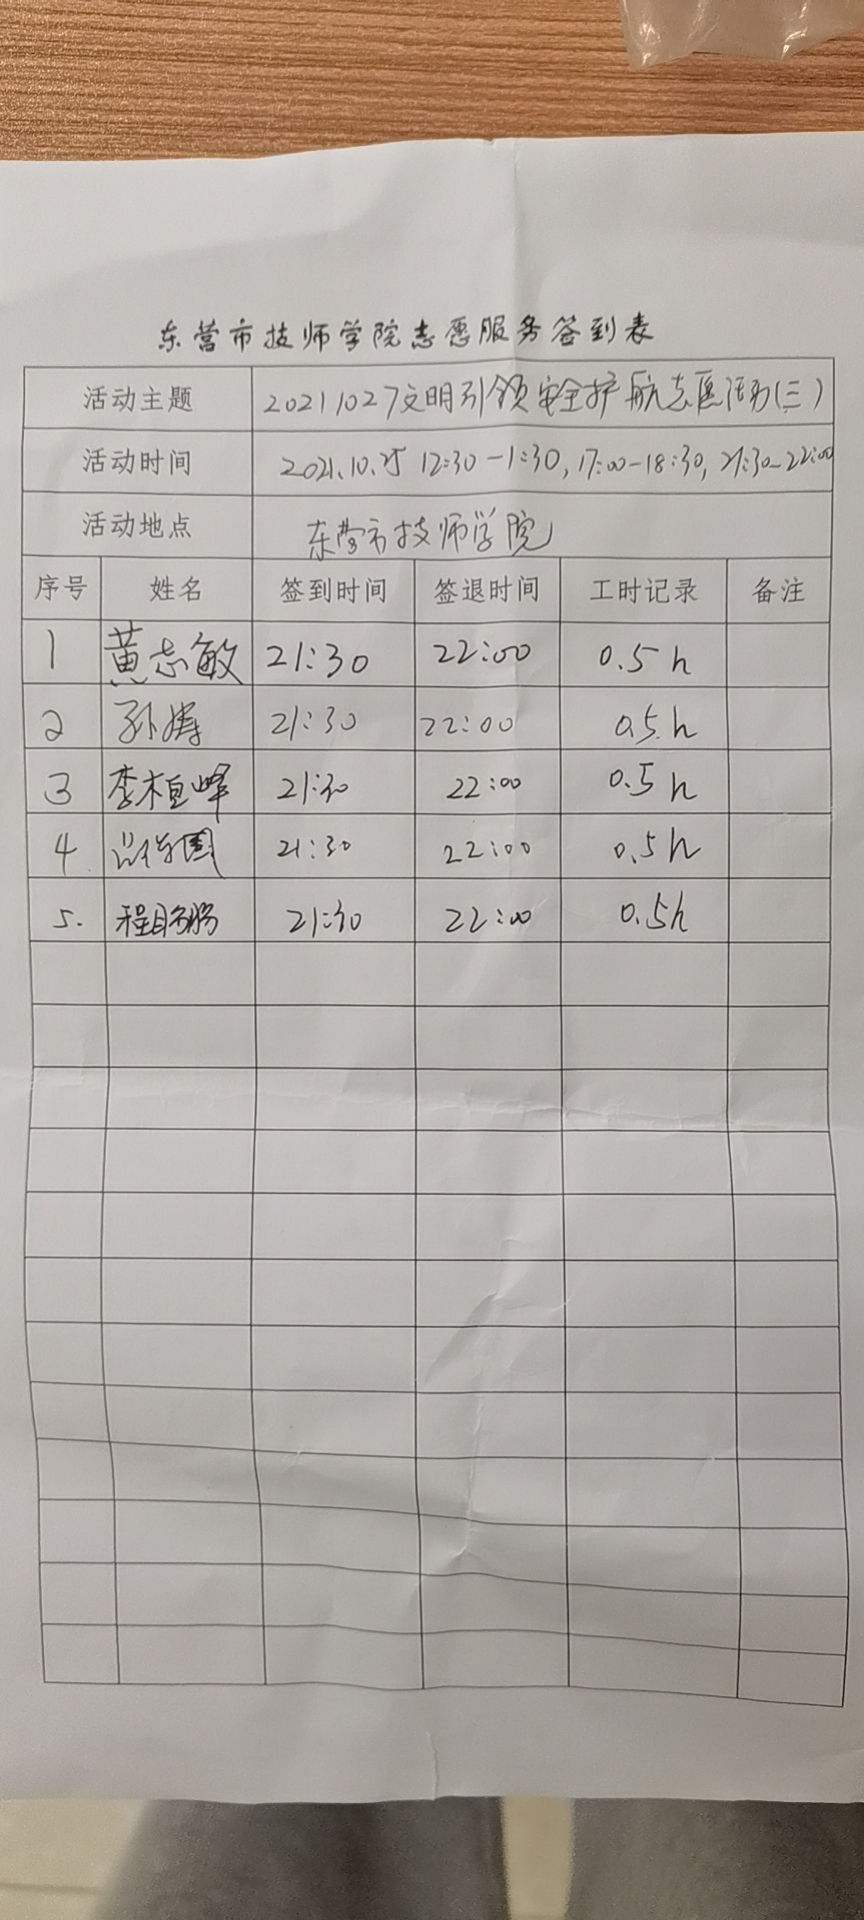 东营市技师学院志愿服务签到表
活动主题 20211027文明引领安全护航志愿活动(三)
活动时间 2021.10.25 12:30-1:30,17:00-18:30,21:30-22:00
活动地点 东营市技师学院
序号 姓名 签到时间 签退时间 工时记录 备注
1 黄志敏 21:30 22:00 0.5h
2 孙涛 21:30 22:00 0.5h
3 李桓峰 21:30 22:00 0.5h
4 21:30 22:00 0.5h
5. 21:30 22:00 0.5h